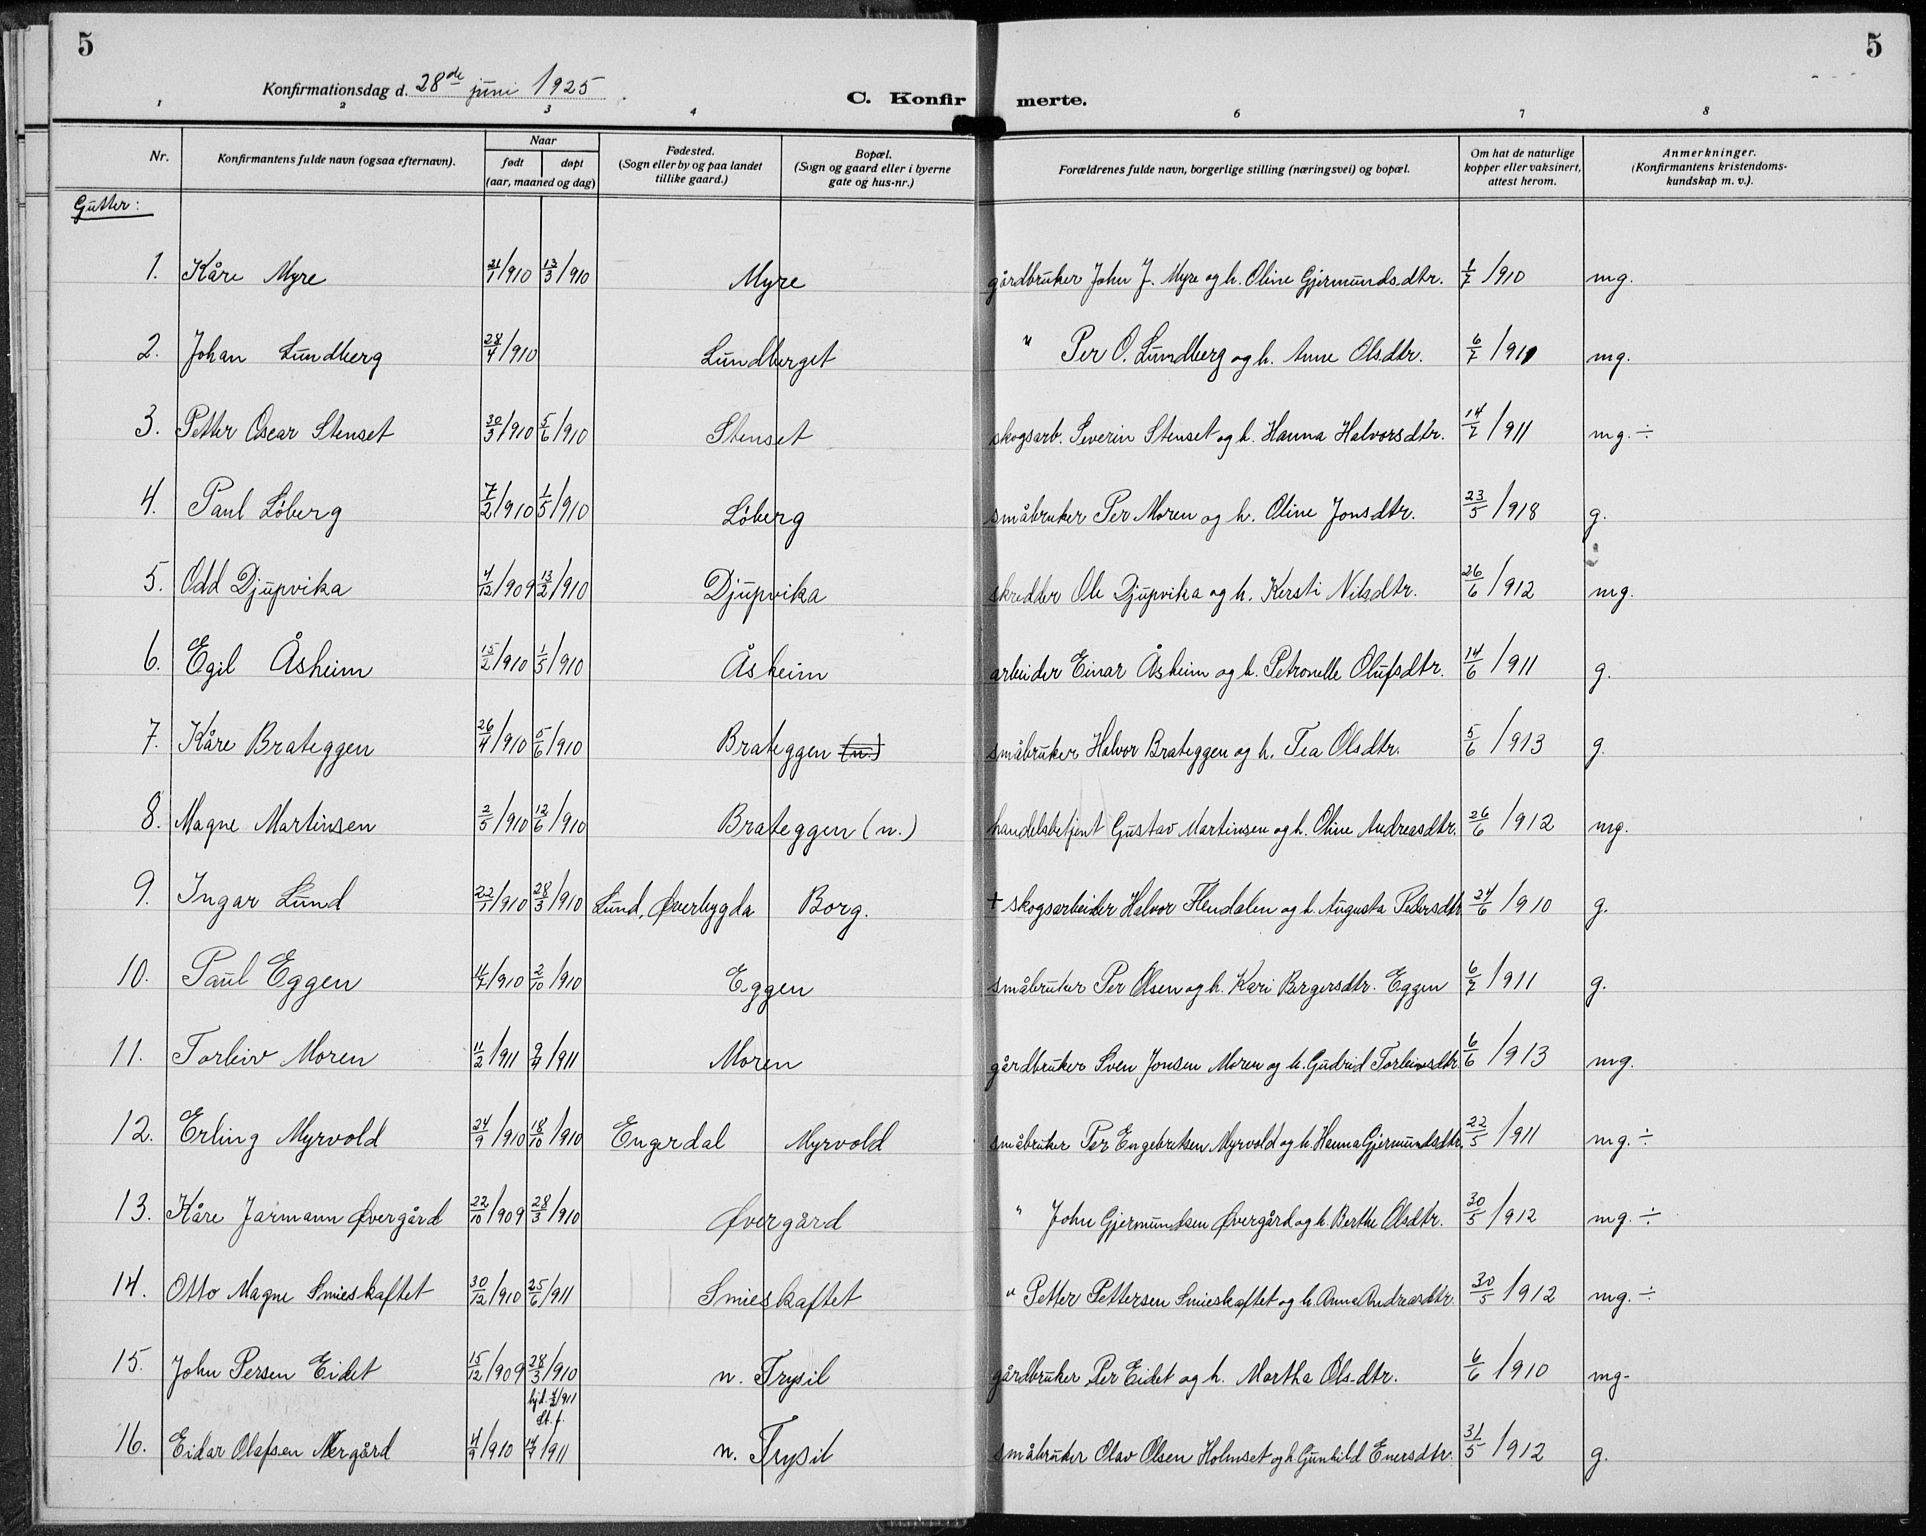 5
5
Konfirmationsdag d. 28de juni 1925.
C. Konfir merte.
1 2 3 4 6 7 8
Nr.
Konfirmantens fulde navn (ogsaa efternavn).
Naar
født døpt
(aar, maaned og dag)
Fødested.
(Sogn eller by og paa landet
tillike gaard.)
Bopæl.
(Sogn og gaard eller i byerne
gate og hus-nr.)
Forældrenes fulde navn, borgerlige stilling (næringsvei) og bopæl.
Om hat de naturlige
kopper eller vaksinert,
attest herom.
Anmerkninger.
(Konfirmantens kristendoms-
kundskap m. v.).
Gutter:
1. Kåre Myre 21/1/910 13/3/910 Myre gårdbruker John J. Myre og h. Oline Gjermundsdtr. 1/7/910 mg.
2. Johan Lundberg 28/4/910 Lundberget " Per O. Lundberg og h. Anne Olsdtr. 6/7/911 mg.
3. Petter Oscar Stenset 30/3/910 5/6/910 Stenset skogsarb. Severin Stenset og h. Hanna Halvorsdtr. 14/7/911 mg. ÷
4. Paul Løberg 7/2/910 1/5/910 Løberg småbruker Per Moren og h. Oline Jonsdtr. 23/5/918 g.
5. Odd Djupvika 4/12/909 13/2/910 Djupvika skredder Ole Djupvika og h. Kersti Nilsdtr. 26/6/912 mg.
6. Egil Åsheim 15/2/910 1/5/910 Åsheim arbeider Einar Åsheim og h. Petronelle Olufsdtr. 14/6/911 g.
7. Kåre Brateggen 26/4/910 5/6/910 Brateggen (n.) småbruker Halvor Brateggen og h. Tea Olsdtr. 5/6/913 g.
8. Magne Martinsen 2/5/910 12/6/910 Brateggen (n.) handelsbetjent Gustav Martinsen og h. Oline Andreasdtr. 26/6/912 mg.
9. Ingar Lund 22/1/910 28/3/910 Lund, Øverbygda Borg. + skogsarbeider Halvor Flendalen og h. Augusta Pedersdtr. 24/6/910 g.
10. Paul Eggen /7/910 2/10/910 Eggen småbruker Per Olsen og h. Kari Børgersdtr. Eggen 6/7/911 g.
11. Torleiv Moren 11/2/911 9/4/911 Moren gårdbruker Sven Jonsen Moren og h. Gudrid Torleivsdtr. 6/6/913 mg.
12. Erling Myrvold 24/9/910 18/10/910 Engerdal Myrvold småbruker Per Engebretsen Myrvold og h. Henna Gjermundsdtr. 22/5/911 mg. ÷
13. Kåre Jarmann Øvergård 22/10/909 28/3/910 Øvergård " John Gjermundsen Øvergård og h. Berthe Olsdtr. 30/5/912 mg. ÷
14. Otto Magne Smieskaftet 30/12/910 25/6/911 Smieskaftet " Petter Pettersen Smieskaftet og h. Anna Andreasdtr. 30/5/912 mg. ÷
15. John Persen Eidet 15/12/909 28/3/910 n. Trysil gårdbruker Per Eidet og h. Martha Olsdtr. 6/6/910 mg-
16. Eidar Olafsen Nergård 4/9/910 14/7/911 n. Trysil småbruker Olav Olsen Holmset og h. Gunhild Enersdtr. 31/5/912 g.